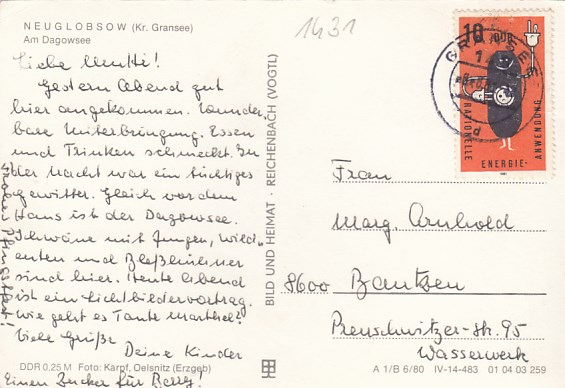 NEUGLOBSOW (Kr. Gransee)
Am Dagowsee
1431
Liebe Mutti!
Gestern Abend gut
hier angekommen. Wunder-
bare Unterbringung. Essen
und Trinken schmeckt. In
der Nacht war ein tüchtiges
Gewitter. Gleich vor dem
Haus ist der Dagowsee.
Schwäne mit Jungen, Wild-
enten und Bleßhühner
sind hier. Heute Abend
ist ein Lichtbildervortrag.
Wie geht es Tante Marthel?
Viele Grüße
Deine Kinder
Einen Zucker für Betty!
Frohes Pfingstfest!
DDR 0,25 M Foto: Karpf, Oelsnitz (Erzgeb)
BILD UND HEIMAT · REICHENBACH (VOGTL)
10 DDR
RATIONELLE
ENERGIE-
ANWENDUNG
1981
GRANSEE
Frau
Marg. Arnhold
8600 Bautzen
Preuschwitzer-Str. 95
Wasserwerk
A 1/B 6/80 IV-14-483 01 04 03 259